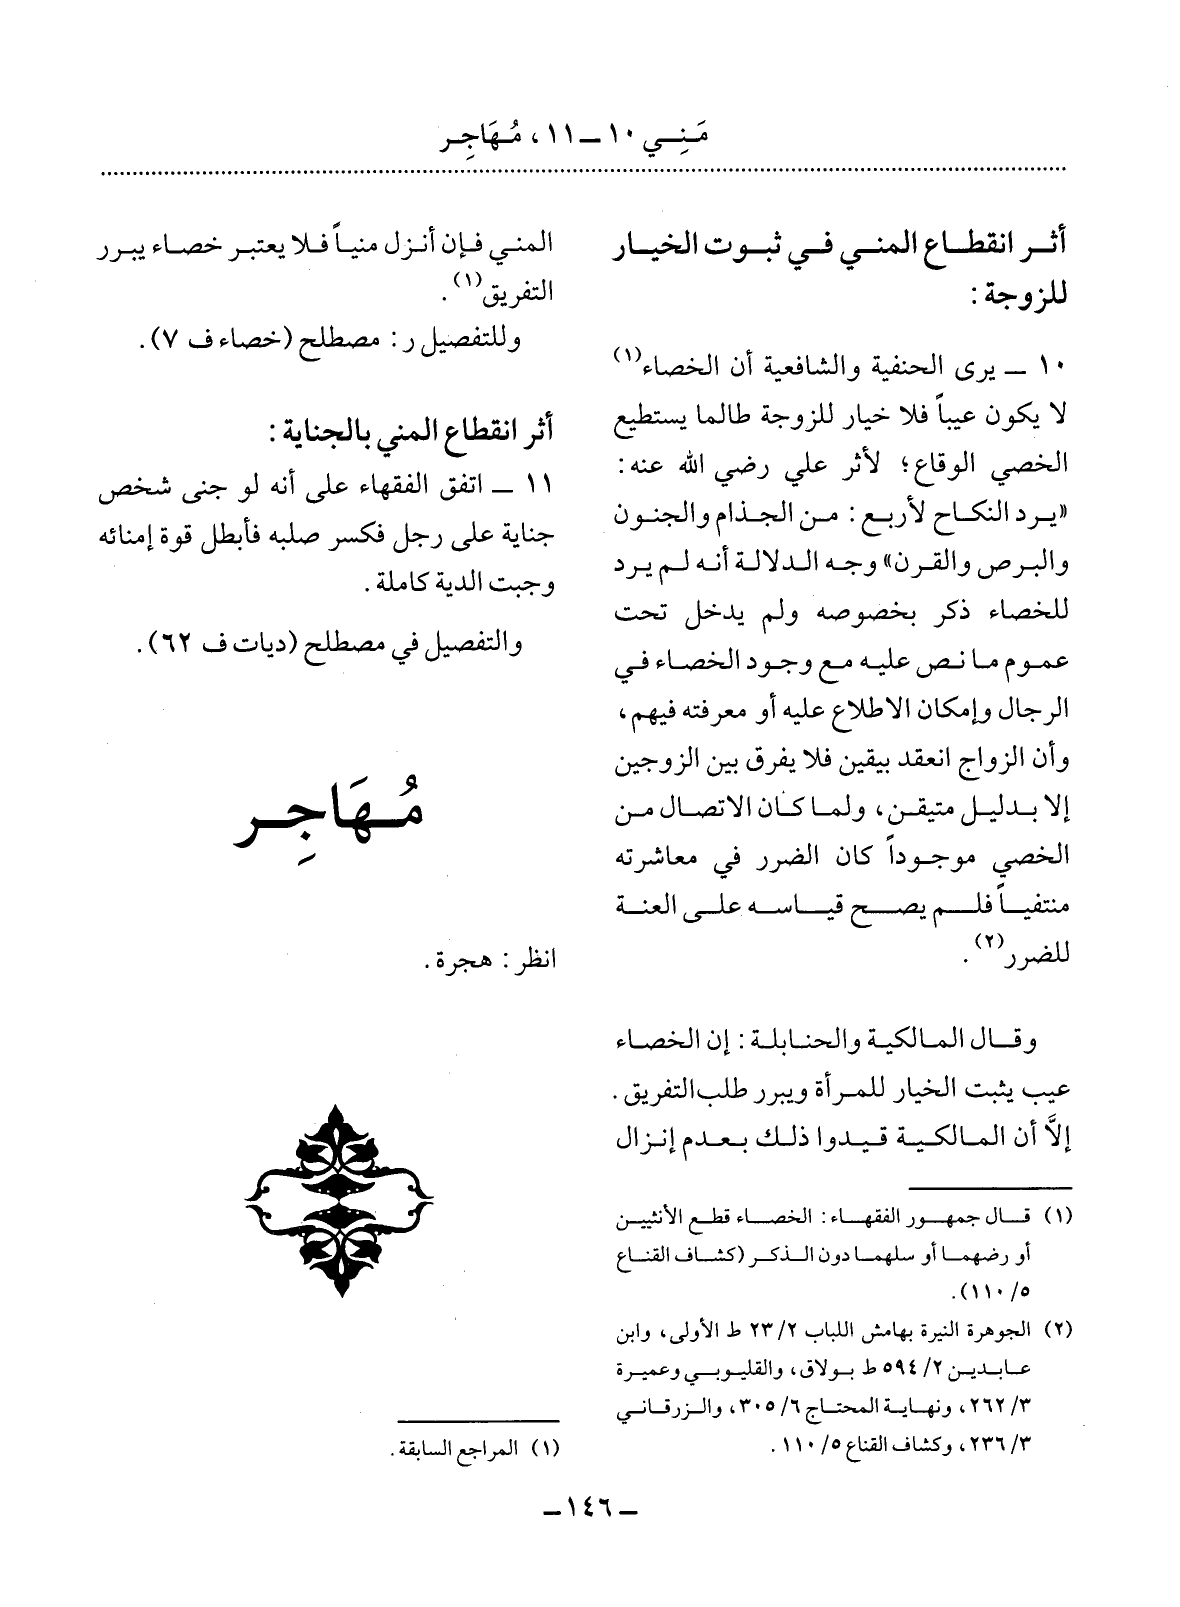 مَنِي ١٠ ــ ١١، مُهَاجِر
أثر انقطاع المني في ثبوت الخيار
للزوجة:
١٠ ــ يرى الحنفية والشافعية أن الخصاء(١)
لا يكون عيباً فلا خيار للزوجة طالما يستطيع
الخصي الوقاع؛ لأثر علي رضي الله عنه:
«يرد النكاح لأربع: من الجذام والجنون
والبرص والقرن» وجه الدلالة أنه لم يرد
للخصاء ذكر بخصوصه ولم يدخل تحت
عموم ما نص عليه مع وجود الخصاء في
الرجال وإمكان الاطلاع عليه أو معرفته فيهم،
وأن الزواج انعقد بيقين فلا يفرق بين الزوجين
إلا بدليل متيقن، ولما كان الاتصال من
الخصي موجوداً كان الضرر في معاشرته
منتفياً فلم يصح قياسه على العنة
للضرر(٢).
وقال المالكية والحنابلة: إن الخصاء
عيب يثبت الخيار للمرأة ويبرر طلب التفريق.
إلاَّ أن المالكية قيدوا ذلك بعدم إنزال
(١) قال جمهور الفقهاء: الخصاء قطع الأنثيين
أو رضهما أو سلهما دون الذكر (كشاف القناع
٥/ ١١٠).
(٢) الجوهرة النيرة بهامش اللباب ٢/ ٢٣ ط الأولى، وابن
عابدين ٢/ ٥٩٤ ط بولاق، والقليوبي وعميرة
٣/ ٢٦٢، ونهاية المحتاج ٦/ ٣٠٥، والزرقاني
٣/ ٢٣٦، وكشاف القناع ٥/ ١١٠.
المني فإن أنزل منياً فلا يعتبر خصاء يبرر
التفريق(١).
وللتفصيل ر: مصطلح (خصاء ف ٧).
أثر انقطاع المني بالجناية:
١١ ــ اتفق الفقهاء على أنه لو جنى شخص
جناية على رجل فكسر صلبه فأبطل قوة إمنائه
وجبت الدية كاملة.
والتفصيل في مصطلح (ديات ف ٦٢).
مُهَاجِر
انظر: هجرة.
(١) المراجع السابقة.
ــ ١٤٦ ــ